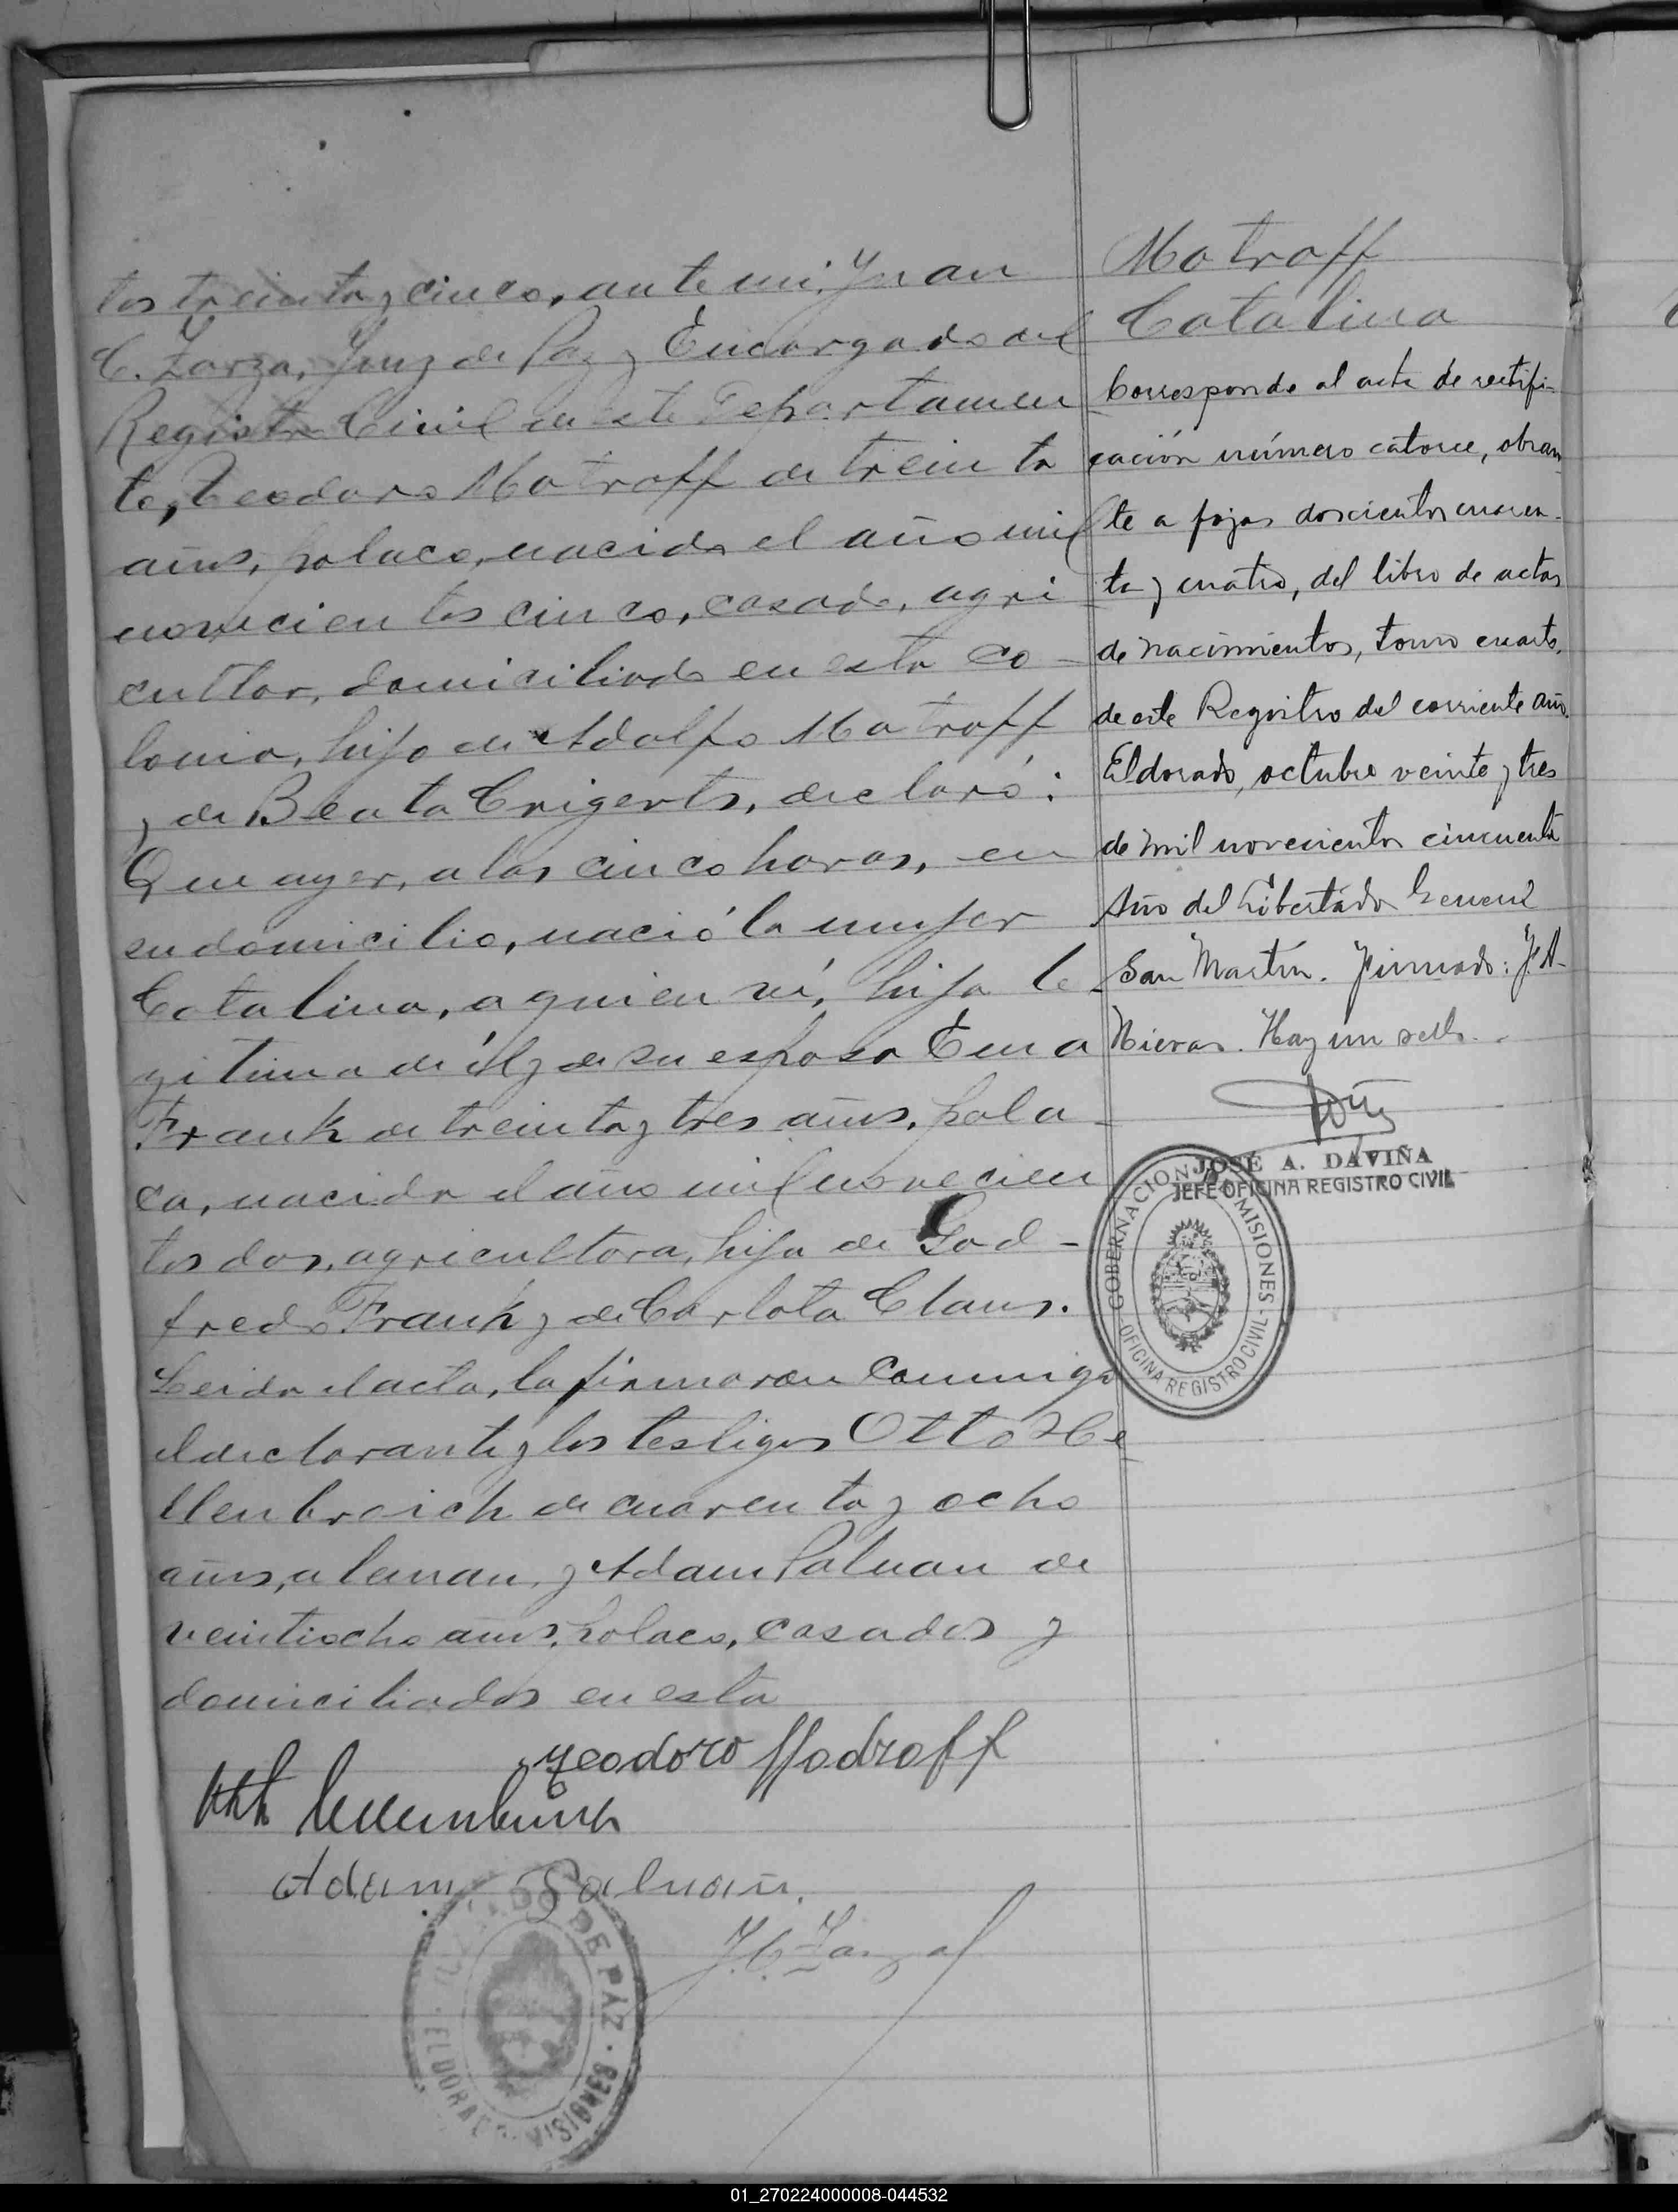 tos treinta y cinco, ante mi, Juan
C. Zarza, Juez de Paz y Encargado del
Registro Civil en este Departamen
to, Teodoro Motroff de treinta
años, polaco, nacido el año mil
novecientos cinco, casado, agri
cultor, domiciliado en esta co-
lonia, hijo de Adolfo Motroff
y de Beata Crigerts, declaró:
Que ayer, a las cinco horas, en
su domicilio, nació la mujer
Catalina, a quien ví, hija le-
gitima de él y de su esposa Ema
Frank de treinta y tres años, pola-
ca, nacida el año mil novecien
tos dos, agricultora, hija de God-
fredo Frank y de Carlota Claus.
Leida el acta, la firmaron conmigo
el declarante y los testigos Otto He
llenbroich de cuarenta y ocho
años, aleman, y Adam Paluan de
veintiocho años, polaco, casados y
domiciliados en esta
Teodoro Modroff
Adam Paluañ.
J.C. Zarza
JUZGADO DE PAZ · ELDORADO · MISIONES
Motroff
Catalina
Corresponde al acta de rectifi-
cación número catorce, obran
te a fojas doscientos cuaren-
ta y cuatro, del libro de actas
de nacimientos, tomo cuarto,
de este Registro del corriente año.
Eldorado, octubre veinte y tres
de mil novecientos cincuenta
Año del Libertador General
San Martín. Firmado: J. A.
Nieras. Hay un sello.
JOSÉ A. DAVIÑA
JEFE OFICINA REGISTRO CIVIL
GOBERNACION DE MISIONES · OFICINA REGISTRO CIVIL
01_270224000008-044532